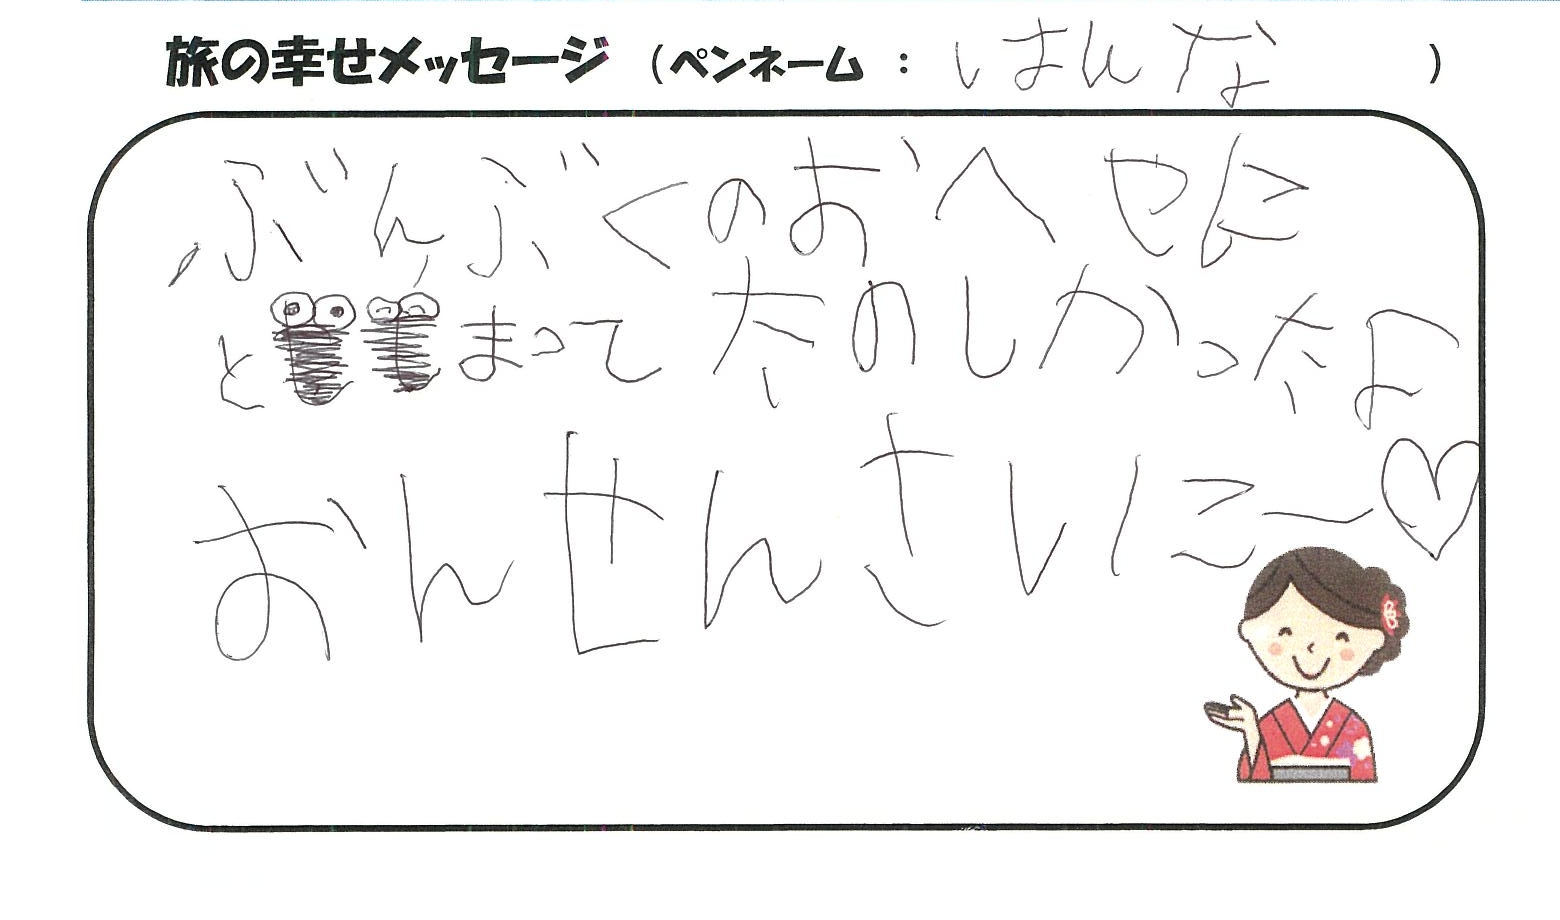 旅の幸せメッセージ (ペンネーム : はんな )
ぶんぶくのおへやに
とまって たのしかったよ
おんせんさいこ〜♡